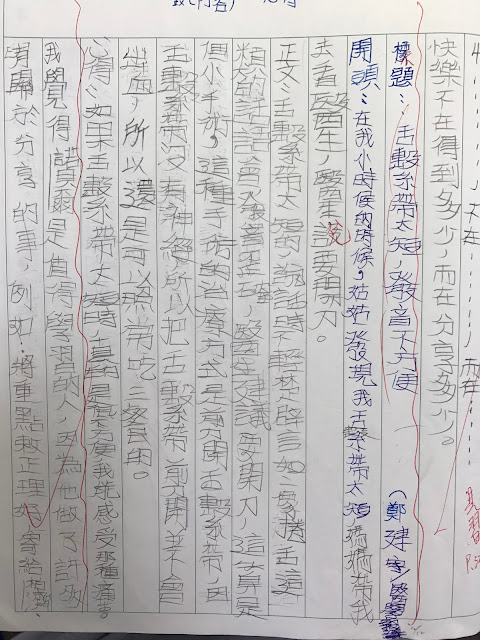 4. ，不在 ，而在
快樂不在得到多少，而在分享多少。
標題：舌繫帶太短，發音不方便 （鄭建
開頭：在我小時候的時候，姑姑發現我舌繫帶太短，媽媽帶我
去看醫生，醫生說要開刀。
正文：舌繫帶太短，說話時不輕楚，譬如： 舌這
類的話語會發音歪 ，醫生建議要開刀，這算是
個小手術，這種手術的治療方式是剪開舌繫帶，因
舌繫帶沒有神經所以把舌繫帶剪開並不會
出血，所以還是可以照常吃、
心得：如果舌繫帶太短時，真的是很不方便我能感受那種痛。
我覺得 爾是值得學習的人，因為他做了許多
有關於分享的事，例如：將重點 正理好，寄給